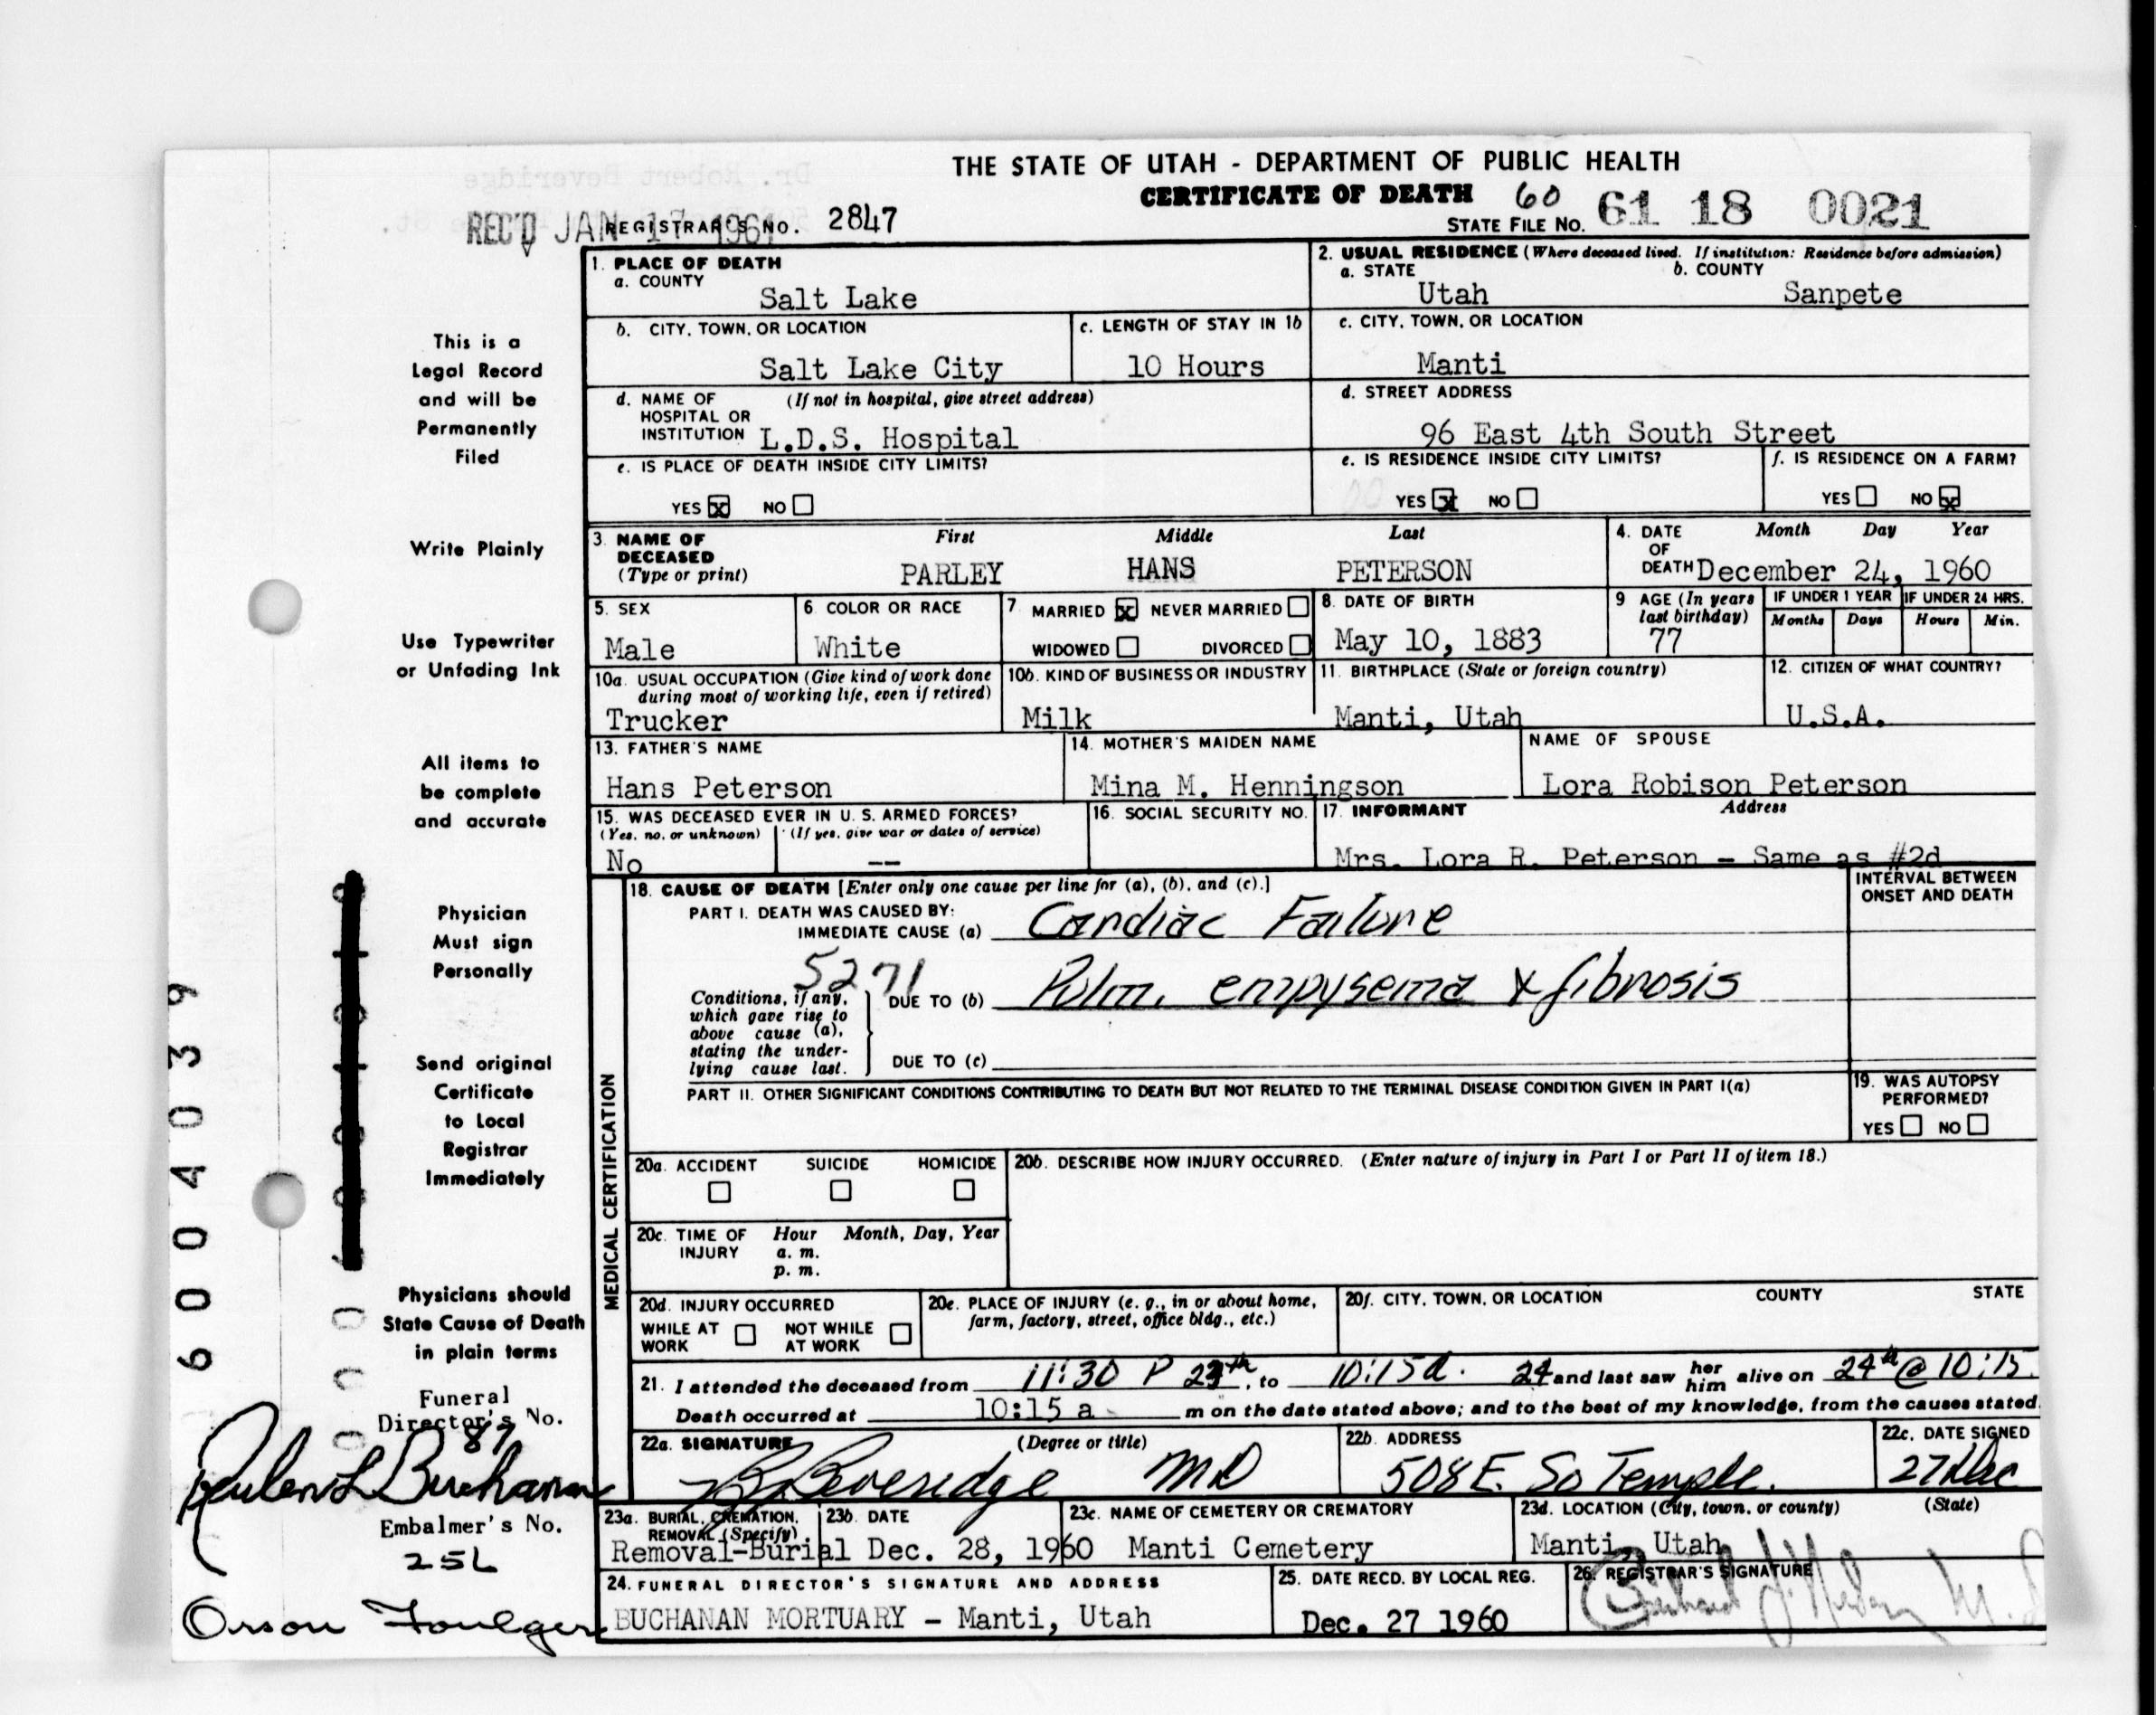 THE STATE OF UTAH - DEPARTMENT OF PUBLIC HEALTH
CERTIFICATE OF DEATH
REC'D JAN 17 1961 REGISTRAR'S NO. 2847
60
STATE FILE NO. 61 18 0021
1. PLACE OF DEATH
a. COUNTY
Salt Lake
2. USUAL RESIDENCE (Where deceased lived. If institution: Residence before admission)
a. STATE b. COUNTY
Utah Sanpete
b. CITY, TOWN, OR LOCATION
Salt Lake City
c. LENGTH OF STAY IN 1b
10 Hours
c. CITY, TOWN, OR LOCATION
Manti
d. NAME OF (If not in hospital, give street address)
HOSPITAL OR
INSTITUTION L.D.S. Hospital
d. STREET ADDRESS
96 East 4th South Street
e. IS PLACE OF DEATH INSIDE CITY LIMITS?
YES X NO
e. IS RESIDENCE INSIDE CITY LIMITS?
YES X NO
f. IS RESIDENCE ON A FARM?
YES NO X
3. NAME OF DECEASED
(Type or print)
First Middle Last
PARLEY HANS PETERSON
4. DATE OF DEATH Month Day Year
December 24, 1960
5. SEX
Male
6. COLOR OR RACE
White
7. MARRIED X NEVER MARRIED
WIDOWED DIVORCED
8. DATE OF BIRTH
May 10, 1883
9 AGE (In years last birthday)
77
IF UNDER 1 YEAR IF UNDER 24 HRS.
Months Days Hours Min.
10a. USUAL OCCUPATION (Give kind of work done
during most of working life, even if retired)
Trucker
10b. KIND OF BUSINESS OR INDUSTRY
Milk
11. BIRTHPLACE (State or foreign country)
Manti, Utah
12. CITIZEN OF WHAT COUNTRY?
U.S.A.
13. FATHER'S NAME
Hans Peterson
14. MOTHER'S MAIDEN NAME
Mina M. Henningson
NAME OF SPOUSE
Lora Robison Peterson
15. WAS DECEASED EVER IN U. S. ARMED FORCES?
(Yes, no, or unknown) (If yes, give war or dates of service)
No --
16. SOCIAL SECURITY NO.
17. INFORMANT Address
Mrs. Lora R. Peterson - Same as #2d
MEDICAL CERTIFICATION
18. CAUSE OF DEATH [Enter only one cause per line for (a), (b), and (c).]
INTERVAL BETWEEN
ONSET AND DEATH
PART I. DEATH WAS CAUSED BY:
IMMEDIATE CAUSE (a) Cardiac Failure
5271
Conditions, if any,
which gave rise to
above cause (a),
stating the under-
lying cause last.
DUE TO (b) Pulm. empysema & fibrosis
DUE TO (c)
PART II. OTHER SIGNIFICANT CONDITIONS CONTRIBUTING TO DEATH BUT NOT RELATED TO THE TERMINAL DISEASE CONDITION GIVEN IN PART I(a)
19. WAS AUTOPSY
PERFORMED?
YES NO
20a. ACCIDENT SUICIDE HOMICIDE
20b. DESCRIBE HOW INJURY OCCURRED. (Enter nature of injury in Part I or Part II of item 18.)
20c. TIME OF INJURY Hour Month, Day, Year
a. m.
p. m.
20d. INJURY OCCURRED
WHILE AT WORK NOT WHILE AT WORK
20e. PLACE OF INJURY (e. g., in or about home,
farm, factory, street, office bldg., etc.)
20f. CITY, TOWN, OR LOCATION COUNTY STATE
21. I attended the deceased from 11:30 P 23th, to 10:15 a. 24 and last saw her him alive on 24th @ 10:15.
Death occurred at 10:15 a m on the date stated above; and to the best of my knowledge, from the causes stated.
22a. SIGNATURE (Degree or title)
R Beveridge MD
22b. ADDRESS
508 E. So Temple.
22c. DATE SIGNED
27 Dec
23a. BURIAL, CREMATION,
REMOVAL (Specify)
Removal-Burial
23b. DATE
Dec. 28, 1960
23c. NAME OF CEMETERY OR CREMATORY
Manti Cemetery
23d. LOCATION (City, town, or county) (State)
Manti, Utah
24. FUNERAL DIRECTOR'S SIGNATURE AND ADDRESS
BUCHANAN MORTUARY - Manti, Utah
25. DATE RECD. BY LOCAL REG.
Dec. 27 1960
26. REGISTRAR'S SIGNATURE
This is a
Legal Record
and will be
Permanently
Filed
Write Plainly
Use Typewriter
or Unfading Ink
All items to
be complete
and accurate
Physician
Must sign
Personally
Send original
Certificate
to Local
Registrar
Immediately
Physicians should
State Cause of Death
in plain terms
Funeral
Director's No.
87
Reuben L Buchanan
Embalmer's No.
25L
Orson Foulger
6004039